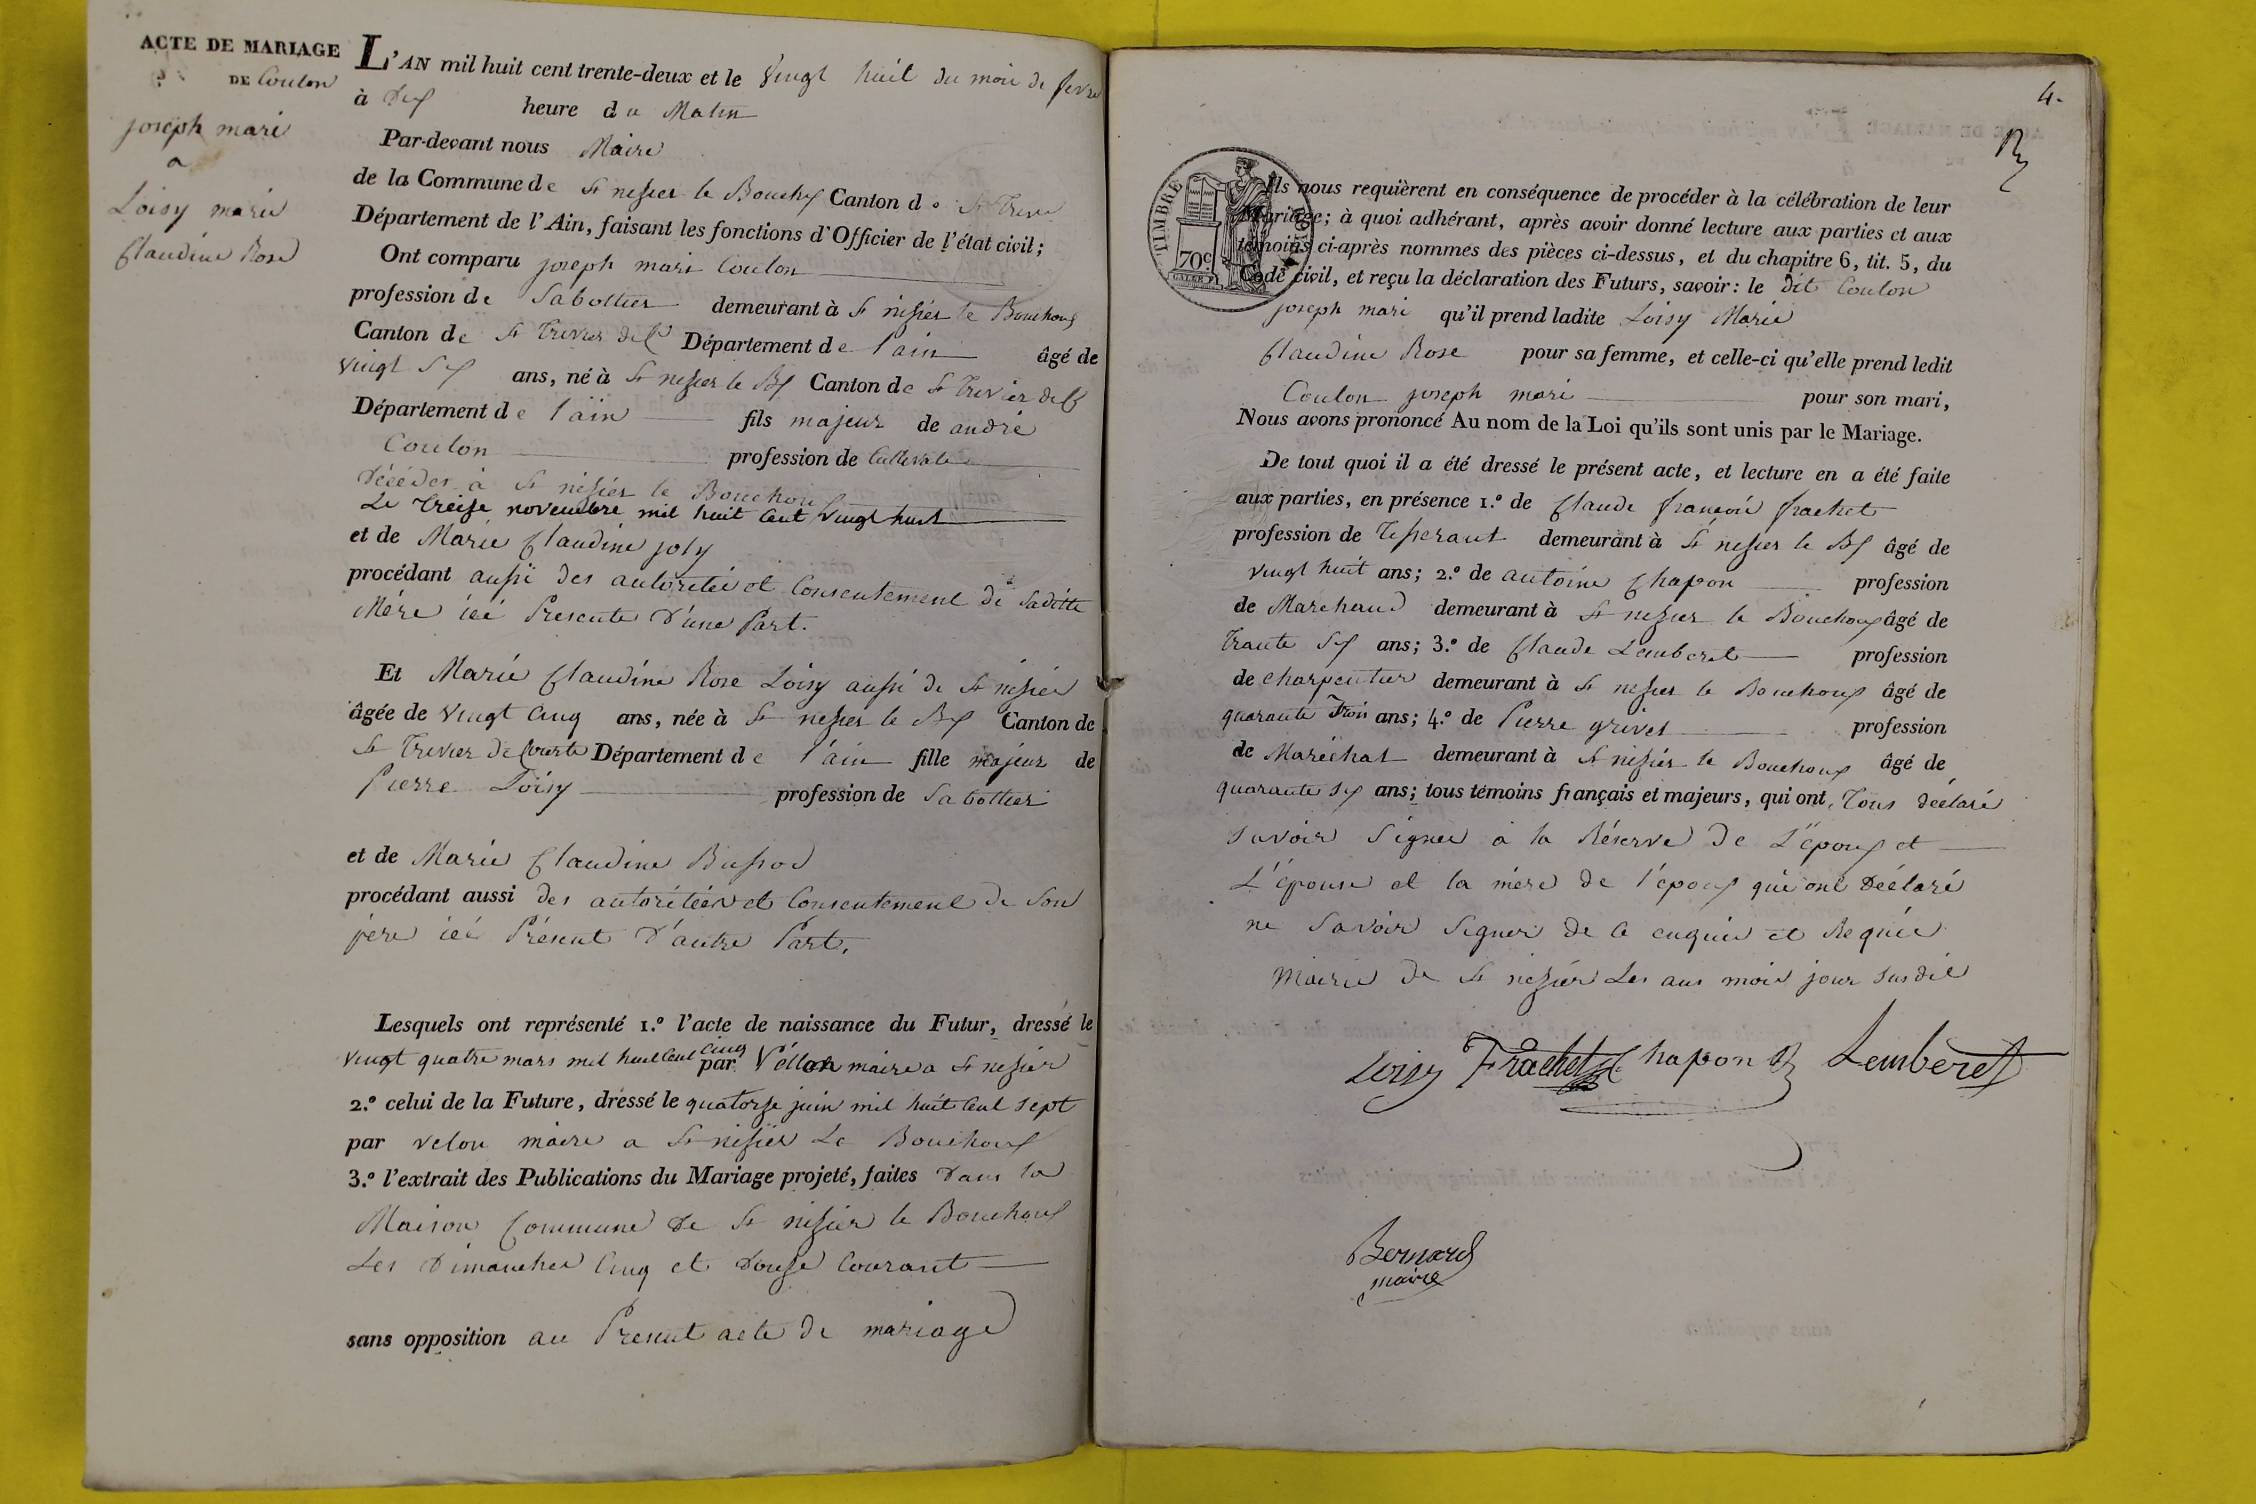 ACTE DE MARIAGE
DE Coulon
joseph mari
a
Loisy marie
Claudine Rose
L'AN mil huit cent trente-deux et le vingt huit du mois de fevr
à dix heure du Matin
Par-devant nous Maire
de la Commune de St nisier le Bouchx Canton de St Trivi
Département de l'Ain, faisant les fonctions d'Officier de l'état civil;
Ont comparu joseph mari Coulon
profession de Sabottier demeurant à St nisier le Bouchoux
Canton de St Trivier de C Département de l'ain âgé de
vingt six ans, né à St nisier le Bx Canton de St Trivier de C
Département de l'ain fils majeur de andré
Coulon profession de Cultivate
décéder à St nisier le Bouchoux
Le treize novembre mil huit cent vingt huit
et de Marie Claudine joly
procédant aussi des autoritée et Consentement de sadite
Mère ici Presente D'une Part.
Et Marie Claudine Rose Loisy aussi de St nisier
âgée de vingt cinq ans, née à St nisier le Bx Canton de
St Trivier de Courte Département de l'ain fille majeur de
Pierre Loisy profession de Sabottier
et de Marie Claudine Bussod
procédant aussi des autoritées et Consentement de Son
père ici Présent D'autre Part.
Lesquels ont représenté 1.º l'acte de naissance du Futur, dressé le
vingt quatre mars mil huit Cent cinq par Vellon maire a St nisier
2.º celui de la Future, dressé le quatorze juin mil huit Cent sept
par velon maire a St nisier Le Bouchoux
3.º l'extrait des Publications du Mariage projeté, faites dans la
Maison Commune de St nisier le Bouchoux
Les Dimanches Cinq et Douze Courant
sans opposition au Present acte de mariage
4.
TIMBRE ROYAL
70c
Ils nous requièrent en conséquence de procéder à la célébration de leur
Mariage; à quoi adhérant, après avoir donné lecture aux parties et aux
témoins ci-après nommés des pièces ci-dessus, et du chapitre 6, tit. 5, du
Code civil, et reçu la déclaration des Futurs, savoir: le dit Coulon
joseph mari qu'il prend ladite Loisy Marie
Claudine Rose pour sa femme, et celle-ci qu'elle prend ledit
Coulon joseph mari pour son mari,
Nous avons prononcé Au nom de la Loi qu'ils sont unis par le Mariage.
De tout quoi il a été dressé le présent acte, et lecture en a été faite
aux parties, en présence 1.º de Claude françois frachet
profession de Tisserant demeurant à St nisier le Bx âgé de
vingt huit ans; 2.º de antoine Chapon profession
de Marchand demeurant à St nisier le Bouchoux âgé de
trante six ans; 3.º de Claude Lemberet profession
de charpentier demeurant à St nisier le Bouchoux âgé de
quarante Trois ans; 4.º de Pierre grivet profession
de Maréchal demeurant à St nisier le Bouchoux âgé de
quarante six ans; tous témoins français et majeurs, qui ont Tous déclaré
savoir Signer a la Réserve de L'époux et
L'épouse et la mère de l'époux qui ont Déclaré
ne Savoir Signer de ce enquis et Requis
Mairie de St nisier Les ans mois jour susdit
Loisy Frachet Chapon Lemberet
Bernard
maire